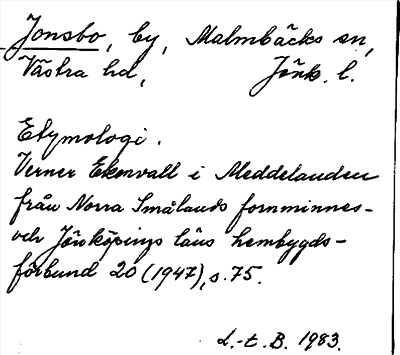 Jonsbo, by, Malmbäcks sn,
Västra hd, Jönk. l.
Etymologi.
Verner Ekenvall i Meddelanden
från Norra Smålands fornminnes-
och Jönköpings läns hembygds-
förbund 20 (1947), s. 75.
L.-t. B. 1983.